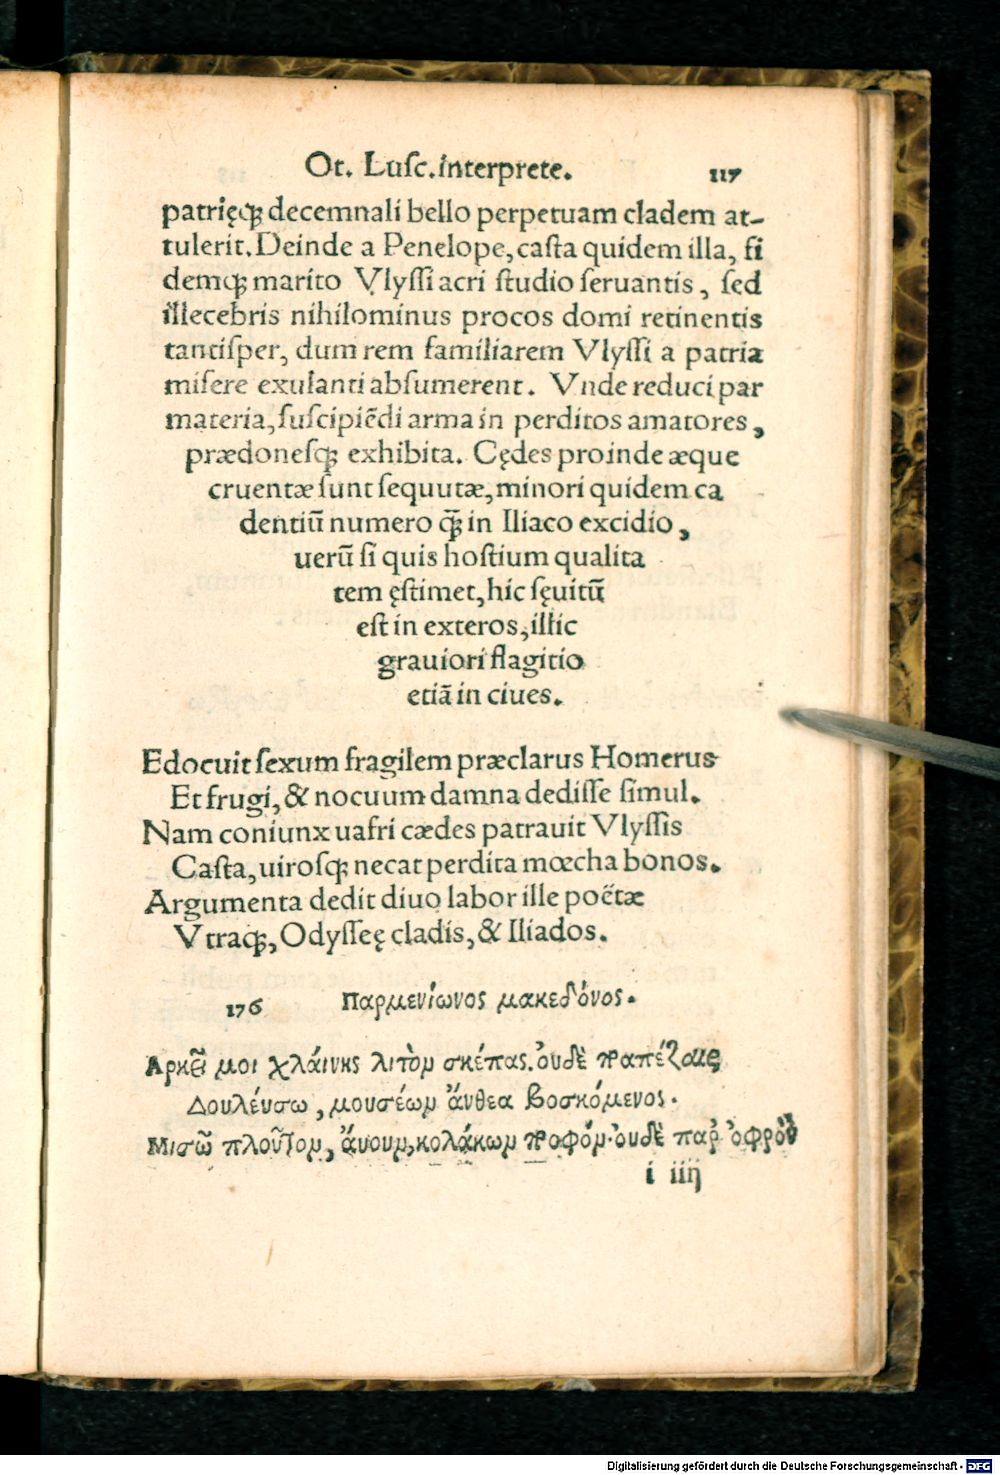 Ot. Luſc. interprete. 117
patrięq́ꝫ decemnali bello perpetuam cladem at-
tulerit. Deinde a Penelope, caſta quidem illa, fi
demq́ꝫ marito Vlyſſi acri ſtudio ſeruantis, ſed
illecebris nihilominus procos domi retinentis
tantiſper, dum rem familiarem Vlyſſi a patria
miſere exulanti abſumerent. Vnde reduci par
materia, ſuſcipiēdi arma in perditos amatores,
prædoneſq́ꝫ exhibita. Cędes proinde æque
cruentæ ſunt ſequutæ, minori quidem ca
dentiū numero q̃ꝫ in Iliaco excidio,
uerū ſi quis hoſtium qualita
tem ęſtimet, hic ſęuitū
eſt in exteros, illic
grauiori flagitio
etiā in ciues.
Edocuit ſexum fragilem præclarus Homerus
Et frugi, & nocuum damna dediſſe ſimul.
Nam coniunx uafri cædes patrauit Vlyſſis
Caſta, uiroſq́ꝫ necat perdita mœcha bonos.
Argumenta dedit diuo labor ille poëtæ
Vtraq́ꝫ, Odyſſeę cladis, & Iliados.
176 Παρμενίωνος μακεδόνος.
Αρκεῖ μοι χλάινης λιτὸν σκέπας. ὀυδὲ τραπέζαις
Δουλέυσω, μουσέων ἄνθεα βοσκόμενος.
Μισῶ πλοῦτον, ἄνουν, κολάκων τροφόν· ὀυδὲ παῤ ὀφρὺν
i iiij
Digitalisierung gefördert durch die Deutsche Forschungsgemeinschaft - DFG